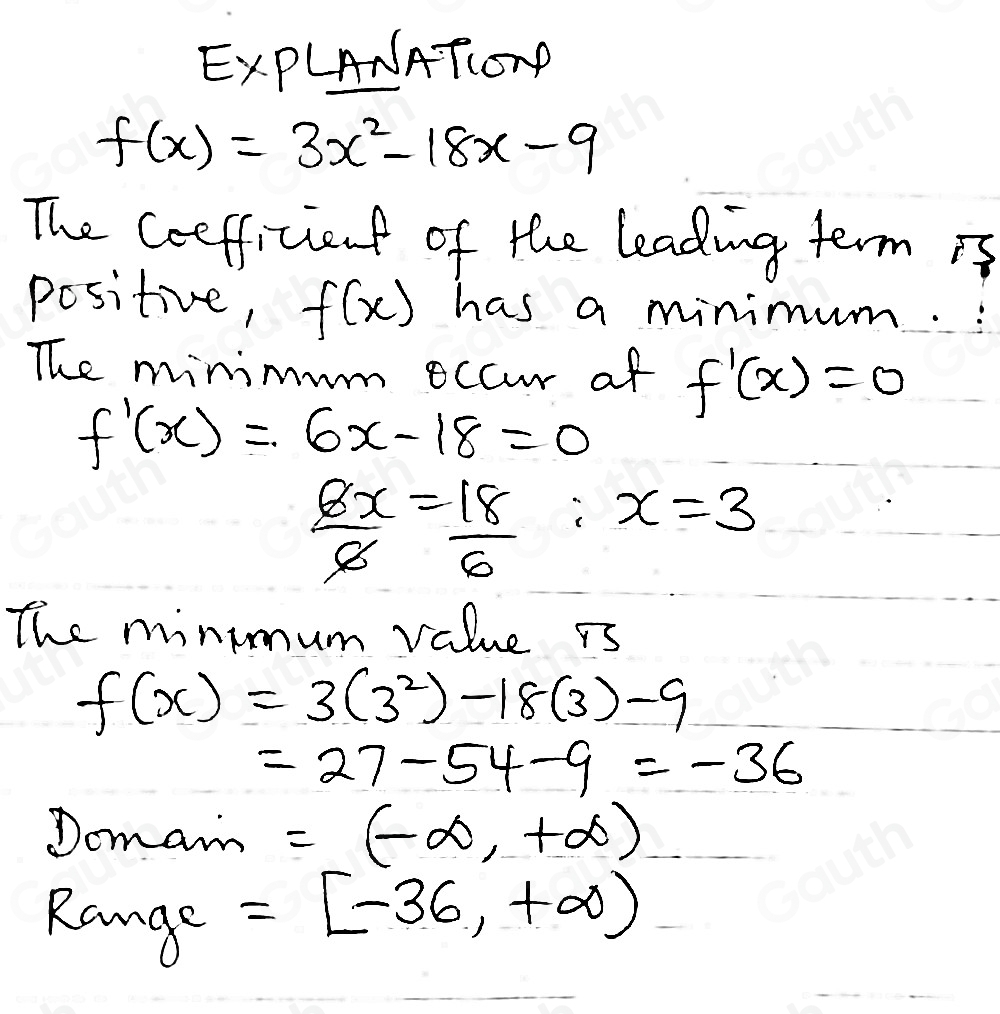 EXPLANATION
f(x) = 3x² - 18x - 9
The Coefficient of the leading term is
positive, f(x) has a minimum.
The minimum occur at f'(x) = 0
f'(x) = 6x - 18 = 0
6x/6 = 18/6 : x = 3
The minimum value is
f(x) = 3(3²) - 18(3) - 9
= 27 - 54 - 9 = -36
Domain = (-∞, +∞)
Range = [-36, +∞)
Gauth